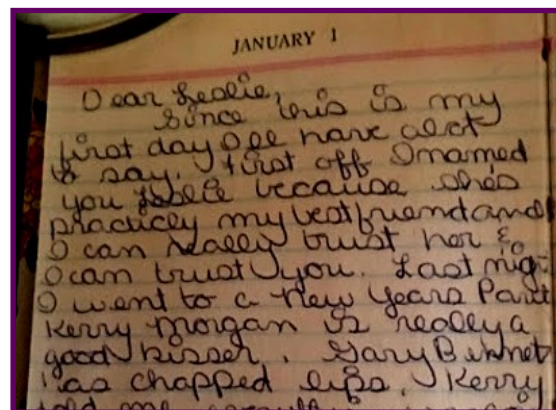 JANUARY 1
Dear Leslie,
Since this is my
first day I'll have alot
to say. First off I named
you Leslie because she's
practicly my best friend and
I can really trust her &
I can trust you. Last nig
I went to a New Years Part
Kerry Morgan is really a
good kisser. Gary Bennet
has chapped lips. Kerry
told me